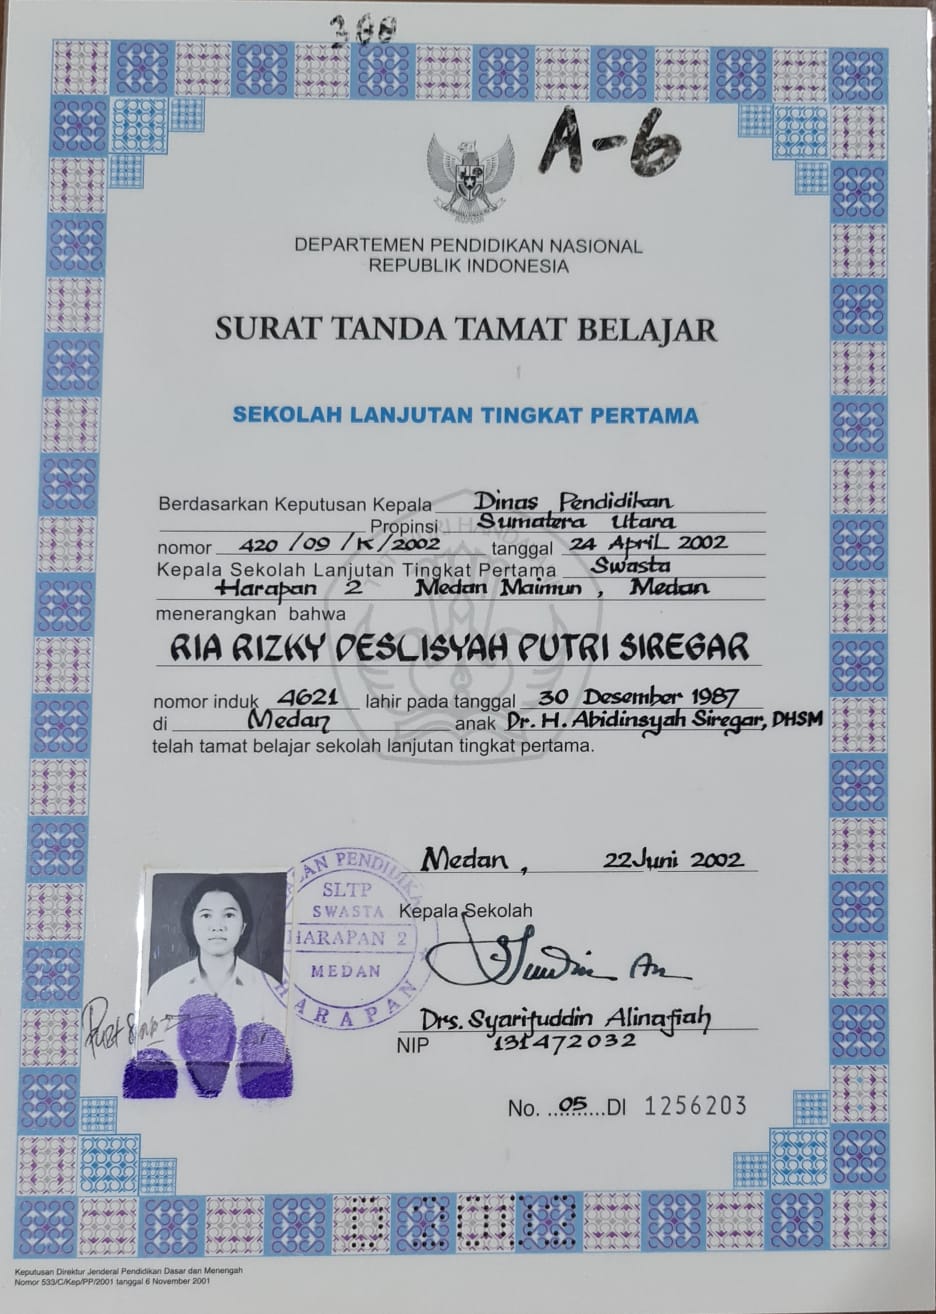 300
A-6
DEPARTEMEN PENDIDIKAN NASIONAL
REPUBLIK INDONESIA
SURAT TANDA TAMAT BELAJAR
SEKOLAH LANJUTAN TINGKAT PERTAMA
Berdasarkan Keputusan Kepala Dinas Pendidikan
Propinsi Sumatera Utara
nomor 420 /09 /K/2002 tanggal 24 April 2002
Kepala Sekolah Lanjutan Tingkat Pertama Swasta
Harapan 2 Medan Maimun , Medan
menerangkan bahwa
RIA RIZKY DESLISYAH PUTRI SIREGAR
nomor induk 4621 lahir pada tanggal 30 Desember 1987
di Medan anak Dr. H. Abidinsyah Siregar, DHSM
telah tamat belajar sekolah lanjutan tingkat pertama.
Medan , 22 Juni 2002
SLTP
SWASTA
HARAPAN 2
MEDAN
HARAPAN
Kepala Sekolah
Drs. Syarifuddin Alinafiah
NIP 131472032
No. ..05....DI 1256203
Keputusan Direktur Jenderal Pendidikan Dasar dan Menengah
Nomor 533/C/Kep/PP/2001 tanggal 6 November 2001